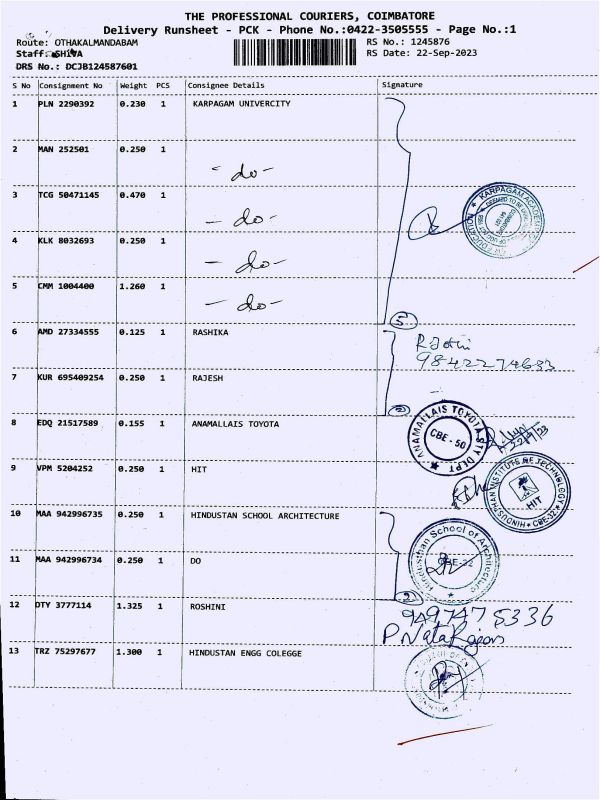 THE PROFESSIONAL COURIERS, COIMBATORE
Delivery Runsheet - PCK - Phone No.:0422-3505555 - Page No.:1
Route: OTHAKALMANDABAM RS No.: 1245876
Staff: SHIVA RS Date: 22-Sep-2023
DRS No.: DCJB124587601
S No Consignment No Weight PCS Consignee Details Signature
1 PLN 2290392 0.230 1 KARPAGAM UNIVERCITY
2 MAN 252501 0.250 1 - do -
3 TCG 50471145 0.470 1 - do -
KARPAGAM ACADEMY EDUCATION
4 KLK 8032693 0.250 1 - do -
5 CMM 1004400 1.260 1 - do -
5
6 AMD 27334555 0.125 1 RASHIKA
7 KUR 695409254 0.250 1 RAJESH
8 EDQ 21517589 0.155 1 ANAMALLAIS TOYOTA
ANAMALLAIS TOYOTA CBE - 50
22/9/23
9 VPM 5204252 0.250 1 HIT
HINDUSTHAN INSTITUTE OF TECHNOLOGY HIT CBE-32
10 MAA 942996735 0.250 1 HINDUSTAN SCHOOL ARCHITECTURE
Hindusthan School of Architecture CBE-32
11 MAA 942996734 0.250 1 DO
2
12 DTY 3777114 1.325 1 ROSHINI
9497475336
P Natarajan
13 TRZ 75297677 1.300 1 HINDUSTAN ENGG COLEGGE